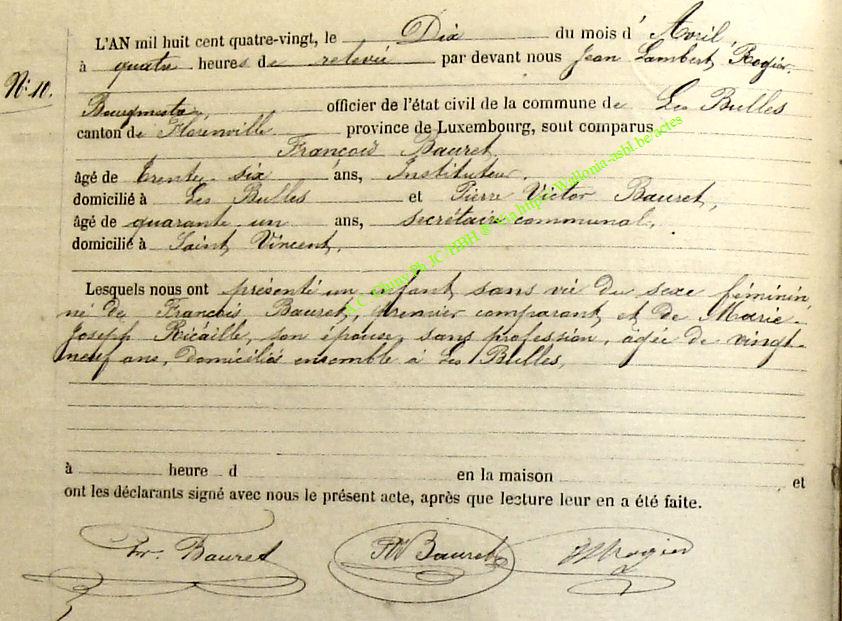 L'AN mil huit cent quatre-vingt, le Dix du mois d' Avril,
à quatre heures de relevée par devant nous Jean Lambert Rogier,
N: 10.
Bourgmestre, officier de l'état civil de la commune de Les Bulles
canton de Florenville province de Luxembourg, sont comparus
François Bauret,
âgé de trente-six ans, Instituteur,
domicilié à Les Bulles et Pierre Victor Bauret,
âgé de quarante un ans, secrétaire communal,
domicilié à Saint Vincent,
Lesquels nous ont présenté un enfant sans vie du sexe féminin,
né de François Bauret, premier comparant, et de Marie-
Joseph Ricaille, son épouse, sans profession, âgée de vingt-
neuf ans, domiciliés ensemble à Les Bulles,
à heure d en la maison et
ont les déclarants signé avec nous le présent acte, après que lecture leur en a été faite.
Fr. Bauret PV Bauret Rogier